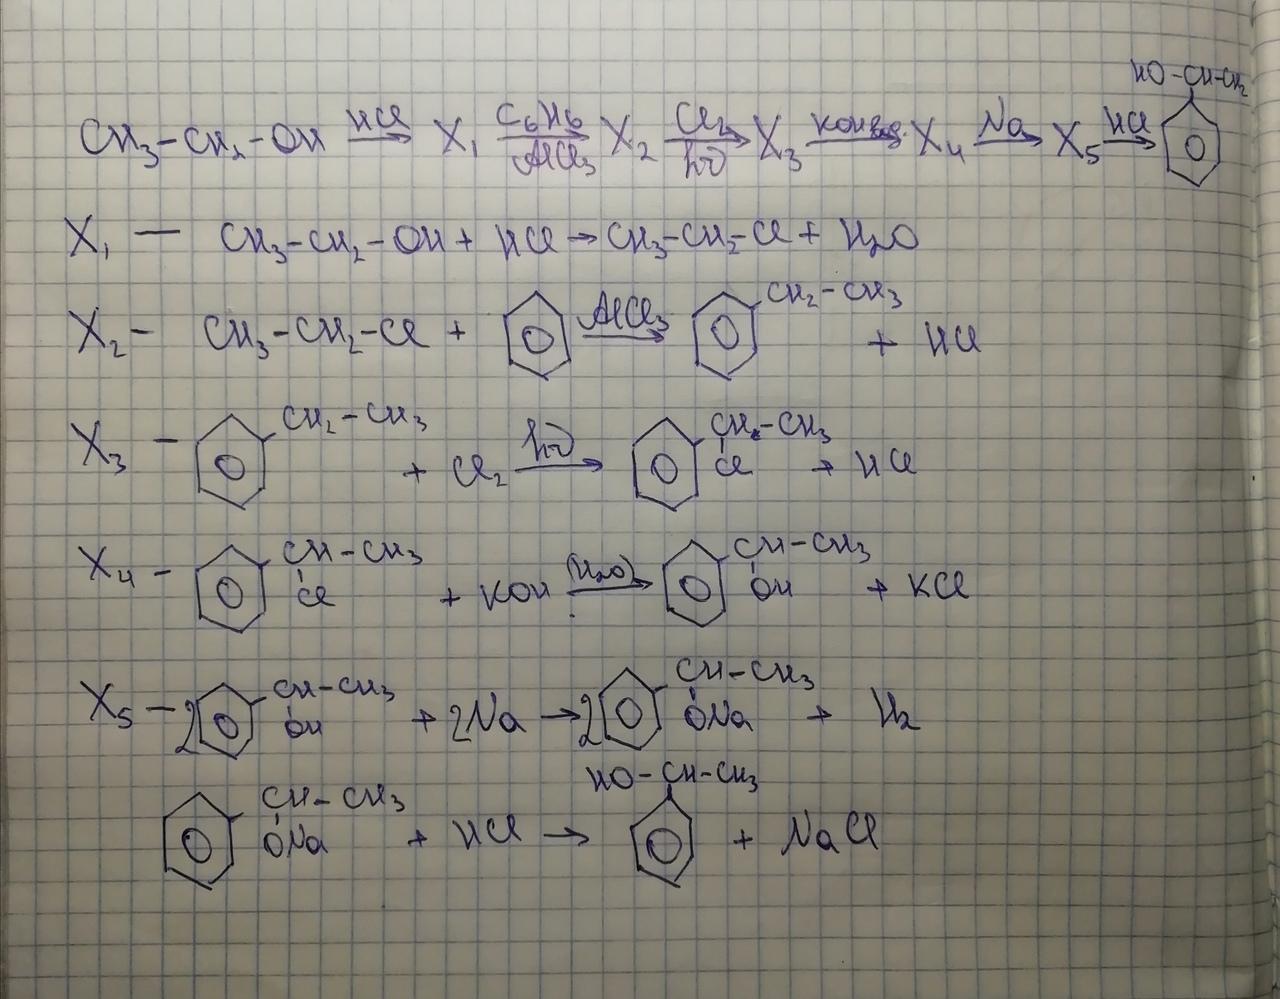 HO-CH-CH₂
CH₃-CH₂-OH →(HCl) X₁ →(C₆H₆, AlCl₃) X₂ →(Cl₂, hν) X₃ →(KOH) X₄ →(Na) X₅ →(HCl)
X₁ — CH₃-CH₂-OH + HCl → CH₃-CH₂-Cl + H₂O
X₂ - CH₃-CH₂-Cl + →(AlCl₃) CH₂-CH₃ + HCl
X₃ - CH₂-CH₃ + Cl₂ →(hν) CH-CH₃ Cl + HCl
X₄ - CH-CH₃ Cl + KOH →(H₂O) CH-CH₃ OH + KCl
X₅ - 2 CH-CH₃ OH + 2Na → 2 CH-CH₃ ONa + H₂
CH-CH₃ ONa + HCl → HO-CH-CH₃ + NaCl